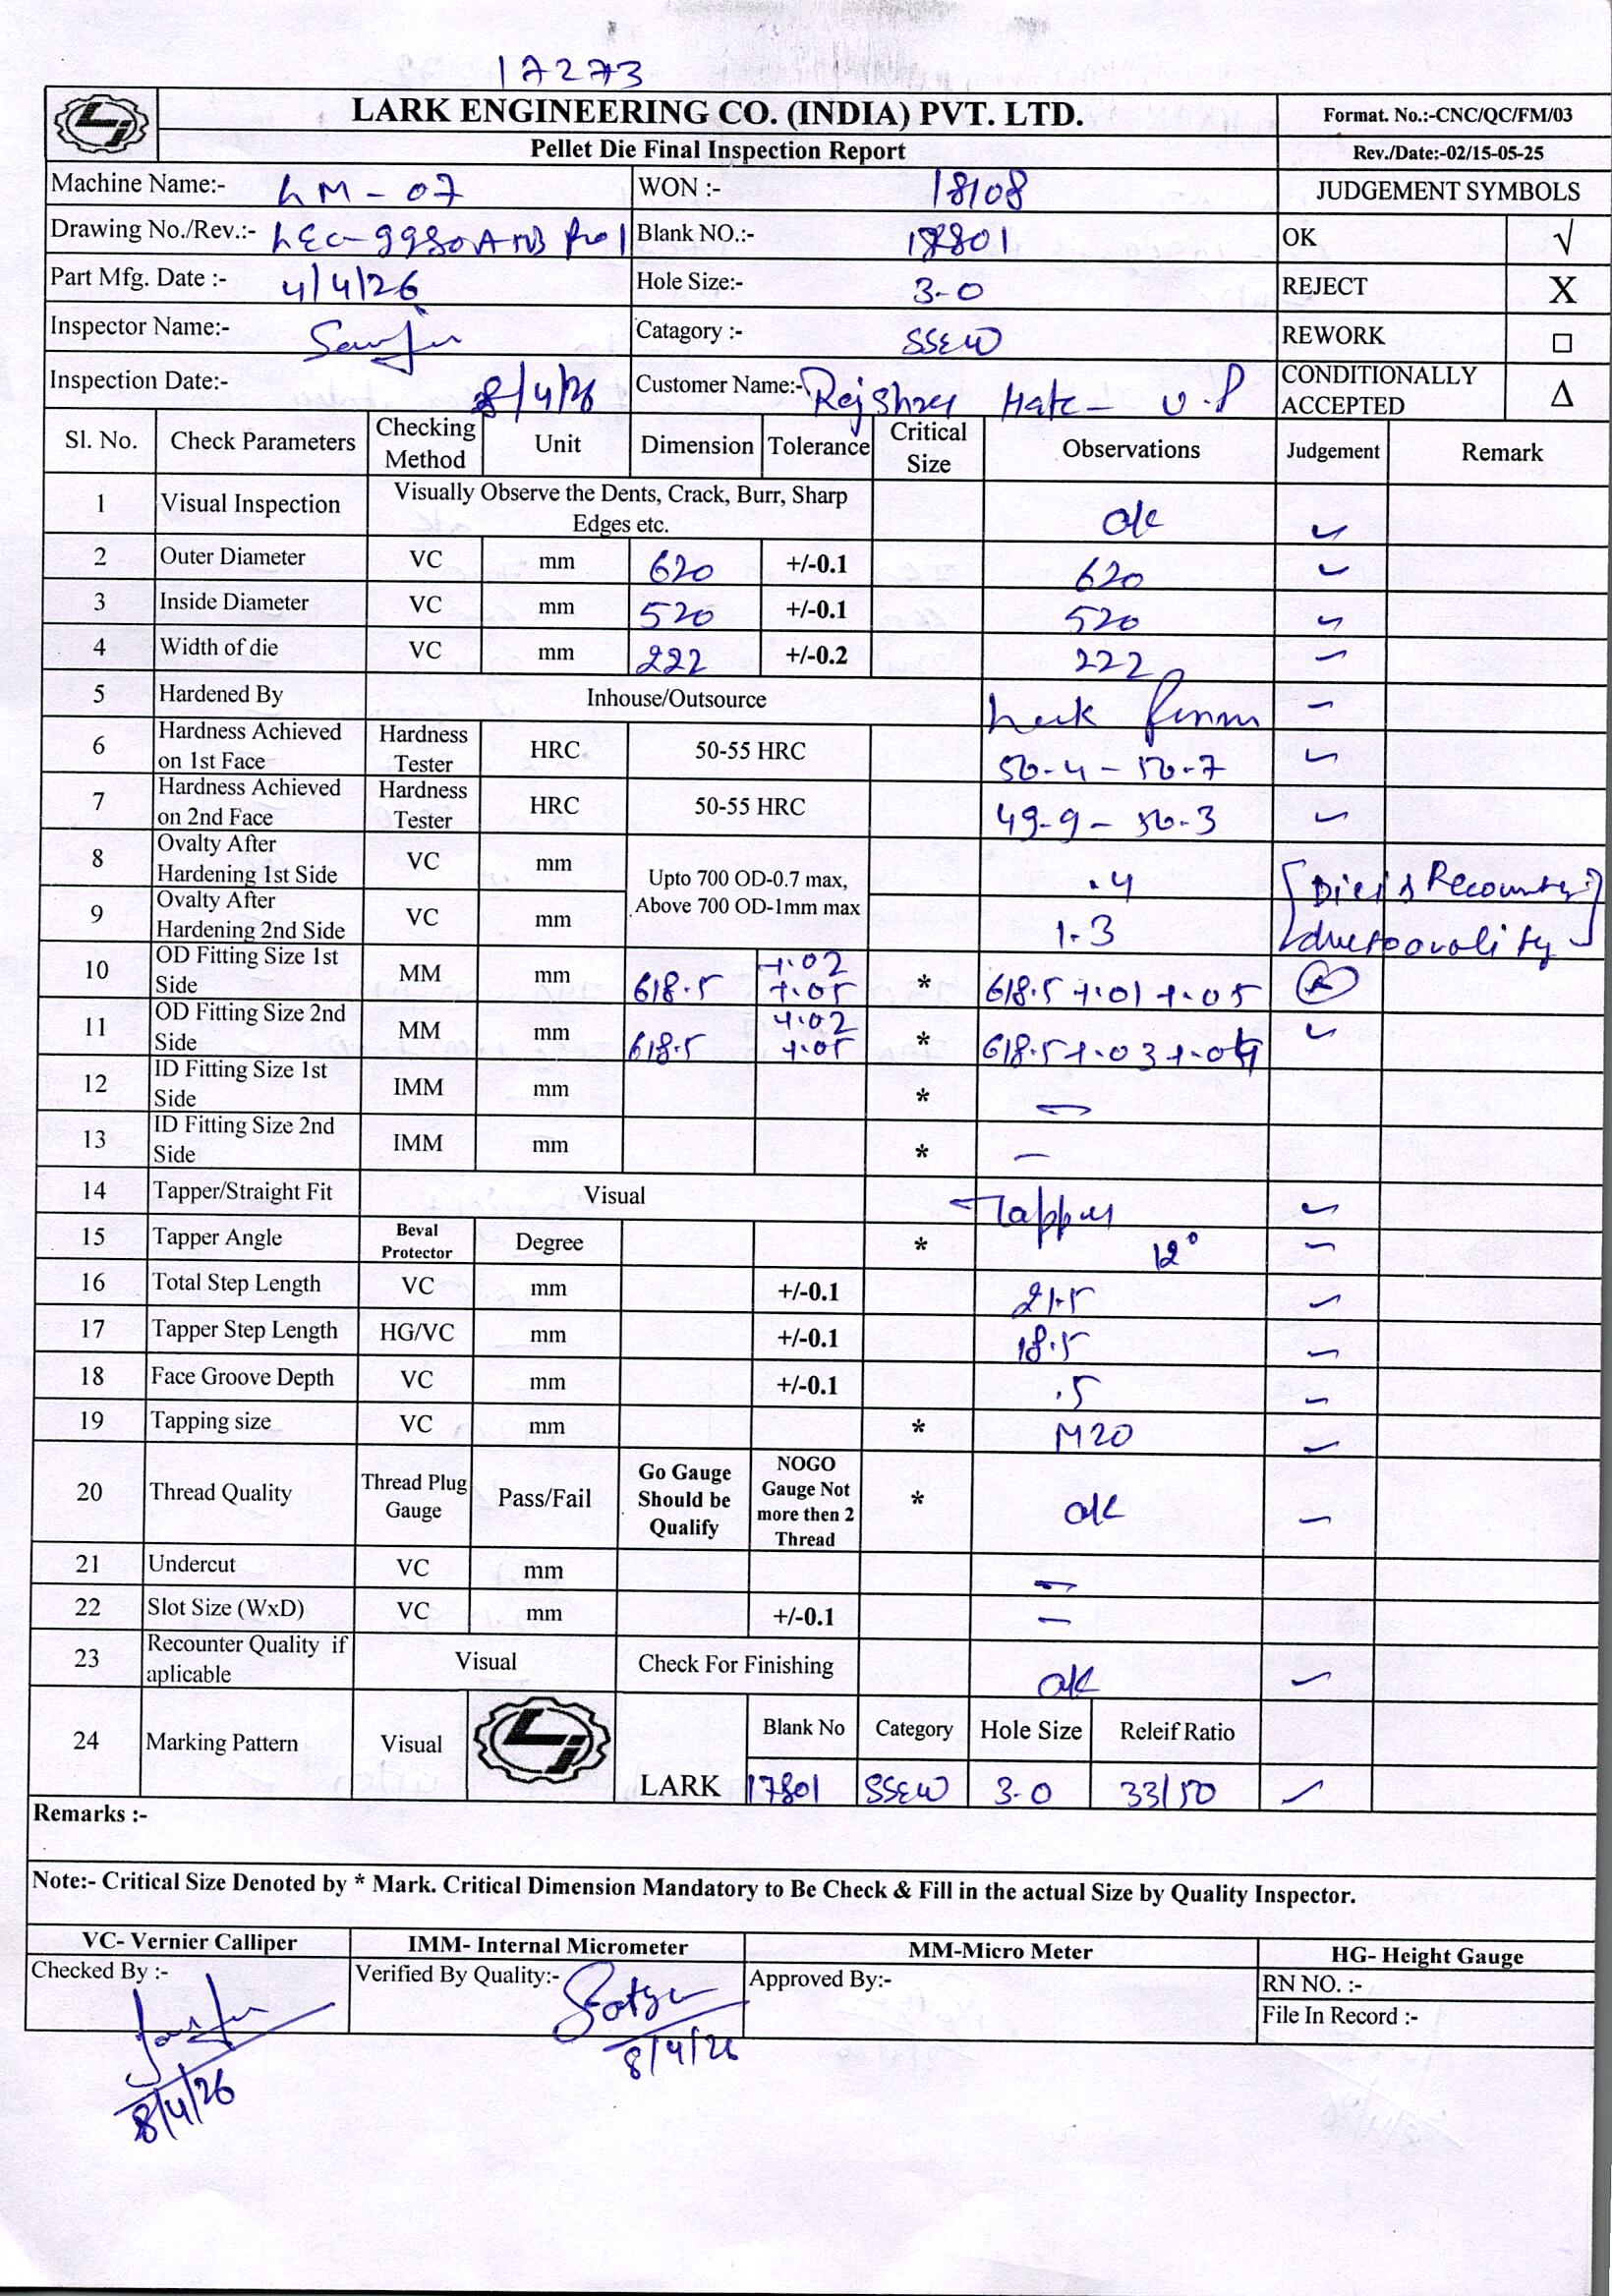 17273
LARK ENGINEERING CO. (INDIA) PVT. LTD.
Format. No.:-CNC/QC/FM/03
Pellet Die Final Inspection Report
Rev./Date:-02/15-05-25
Machine Name:- LM-07 WON :- 18108 JUDGEMENT SYMBOLS
Drawing No./Rev.:- Blank NO.:- 17801 OK √
Part Mfg. Date :- 4/4/26 Hole Size:- 3-0 REJECT X
Inspector Name:- Catagory :- SSEW REWORK □
Inspection Date:- 8/4/26 Customer Name:- U.P CONDITIONALLY ACCEPTED Δ
Sl. No. Check Parameters Checking Method Unit Dimension Tolerance Critical Size Observations Judgement Remark
1 Visual Inspection Visually Observe the Dents, Crack, Burr, Sharp Edges etc. ok ✓
2 Outer Diameter VC mm 620 +/-0.1 620 ✓
3 Inside Diameter VC mm 520 +/-0.1 520 ✓
4 Width of die VC mm 222 +/-0.2 222 ✓
5 Hardened By Inhouse/Outsource ✓
6 Hardness Achieved on 1st Face Hardness Tester HRC 50-55 HRC 50-4 - 50-7 ✓
7 Hardness Achieved on 2nd Face Hardness Tester HRC 50-55 HRC 49-9 - 50-3 ✓
8 Ovalty After Hardening 1st Side VC mm Upto 700 OD-0.7 max, Above 700 OD-1mm max .4 Die is Recounter
9 Ovalty After Hardening 2nd Side VC mm 1.3 due to ovality
10 OD Fitting Size 1st Side MM mm 618.5 +.02 +.05 * 618.5 +.01 +.05
11 OD Fitting Size 2nd Side MM mm 618.5 +.02 +.05 * 618.5 +.03 +.04 ✓
12 ID Fitting Size 1st Side IMM mm * —
13 ID Fitting Size 2nd Side IMM mm * —
14 Tapper/Straight Fit Visual Tapper ✓
15 Tapper Angle Beval Protector Degree * 12° ✓
16 Total Step Length VC mm +/-0.1 21.5 ✓
17 Tapper Step Length HG/VC mm +/-0.1 18.5 ✓
18 Face Groove Depth VC mm +/-0.1 .5 ✓
19 Tapping size VC mm * M20 ✓
20 Thread Quality Thread Plug Gauge Pass/Fail Go Gauge Should be Qualify NOGO Gauge Not more then 2 Thread * ok ✓
21 Undercut VC mm —
22 Slot Size (WxD) VC mm +/-0.1 —
23 Recounter Quality if aplicable Visual Check For Finishing ok ✓
24 Marking Pattern Visual LARK Blank No Category Hole Size Releif Ratio
17801 SSEW 3-0 33/50 ✓
Remarks :-
Note:- Critical Size Denoted by * Mark. Critical Dimension Mandatory to Be Check & Fill in the actual Size by Quality Inspector.
VC- Vernier Calliper IMM- Internal Micrometer MM-Micro Meter HG- Height Gauge
Checked By :- Verified By Quality:- Approved By:- RN NO. :-
File In Record :-
8/4/26
8/4/26